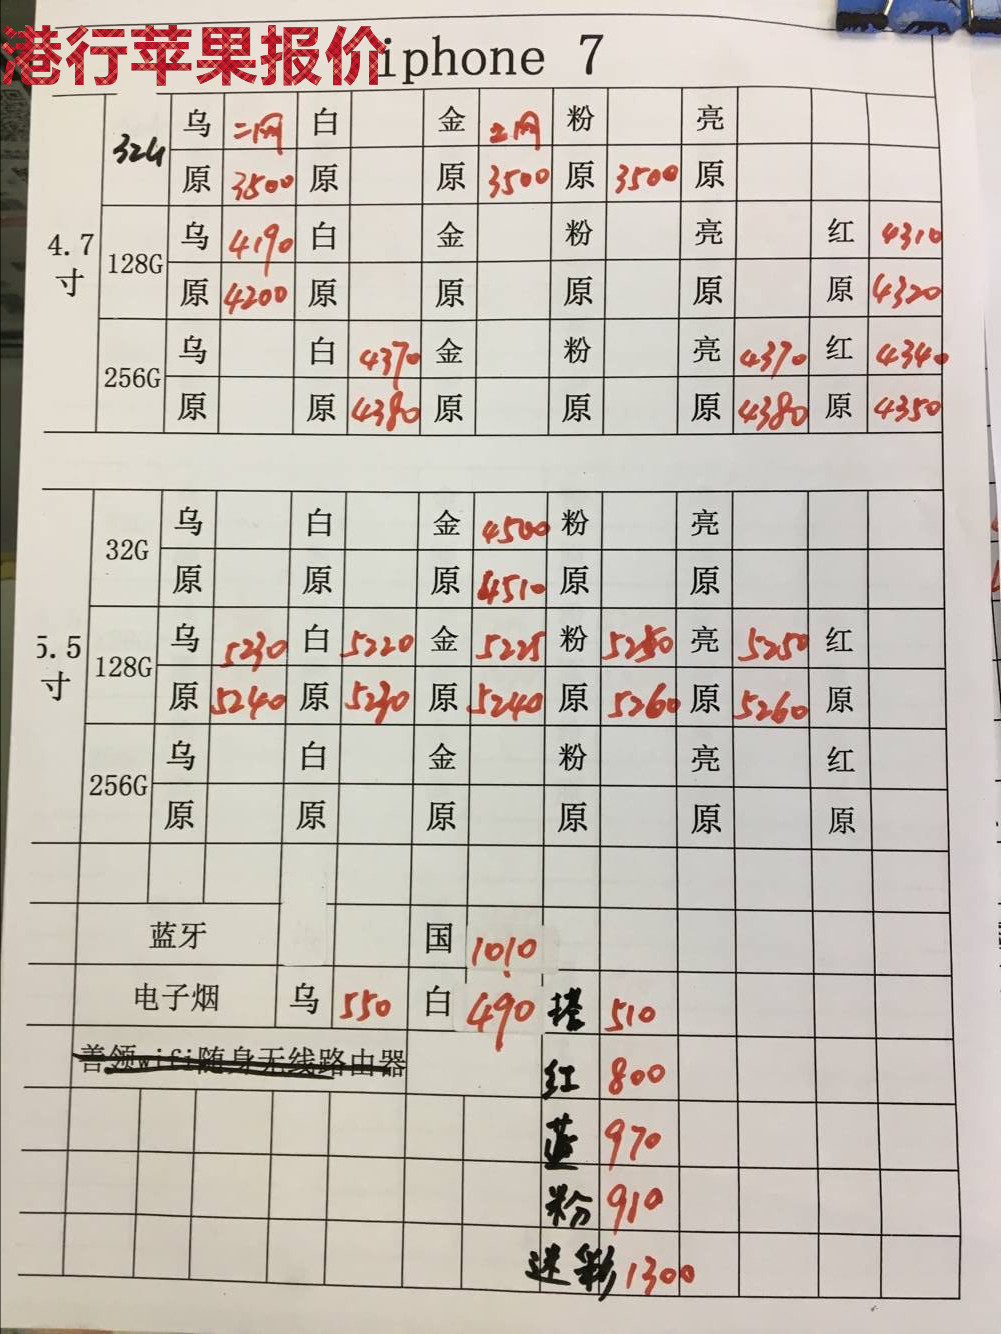 港行苹果报价
iphone 7
4.7寸
32G 乌 二网 白 金 二网 粉 亮
原 3500 原 原 3500 原 3500 原
128G 乌 4190 白 金 粉 亮 红 4310
原 4200 原 原 原 原 原 4320
256G 乌 白 4370 金 粉 亮 4370 红 4340
原 原 4380 原 原 原 4380 原 4350
5.5寸
32G 乌 白 金 4500 粉 亮
原 原 原 4510 原 原
128G 乌 5230 白 5220 金 5225 粉 5250 亮 5250 红
原 5240 原 5230 原 5240 原 5260 原 5260 原
256G 乌 白 金 粉 亮 红
原 原 原 原 原 原
蓝牙 国 1010
电子烟 乌 550 白 490 510
善领wifi随身无线路由器
红 800
蓝 970
粉 910
迷彩 1300